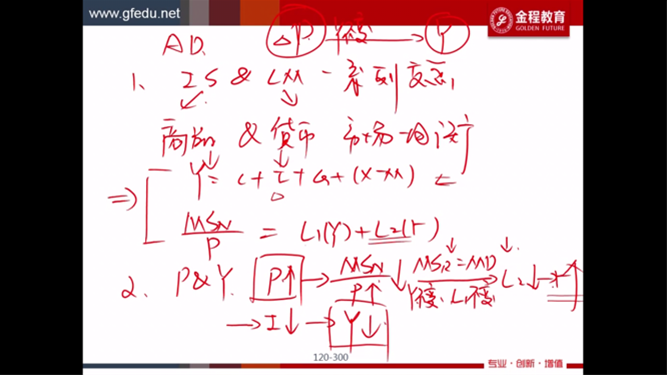 www.gfedu.net
金程教育
GOLDEN FUTURE
AD. ΔP Y不变 → Y
1. IS & LM 一系列交点
商品 & 货币 市场均衡
⇒ Y = C + I + G + (X-M) ←
MSN/P = L1(Y) + L2(r)
2. P&Y. P↑ → MSN/P↑ ↓ MSR=MD Y不变, L1不变 L2↓ → r↑
→ I↓ → Y↓
120-300
专业·创新·增值